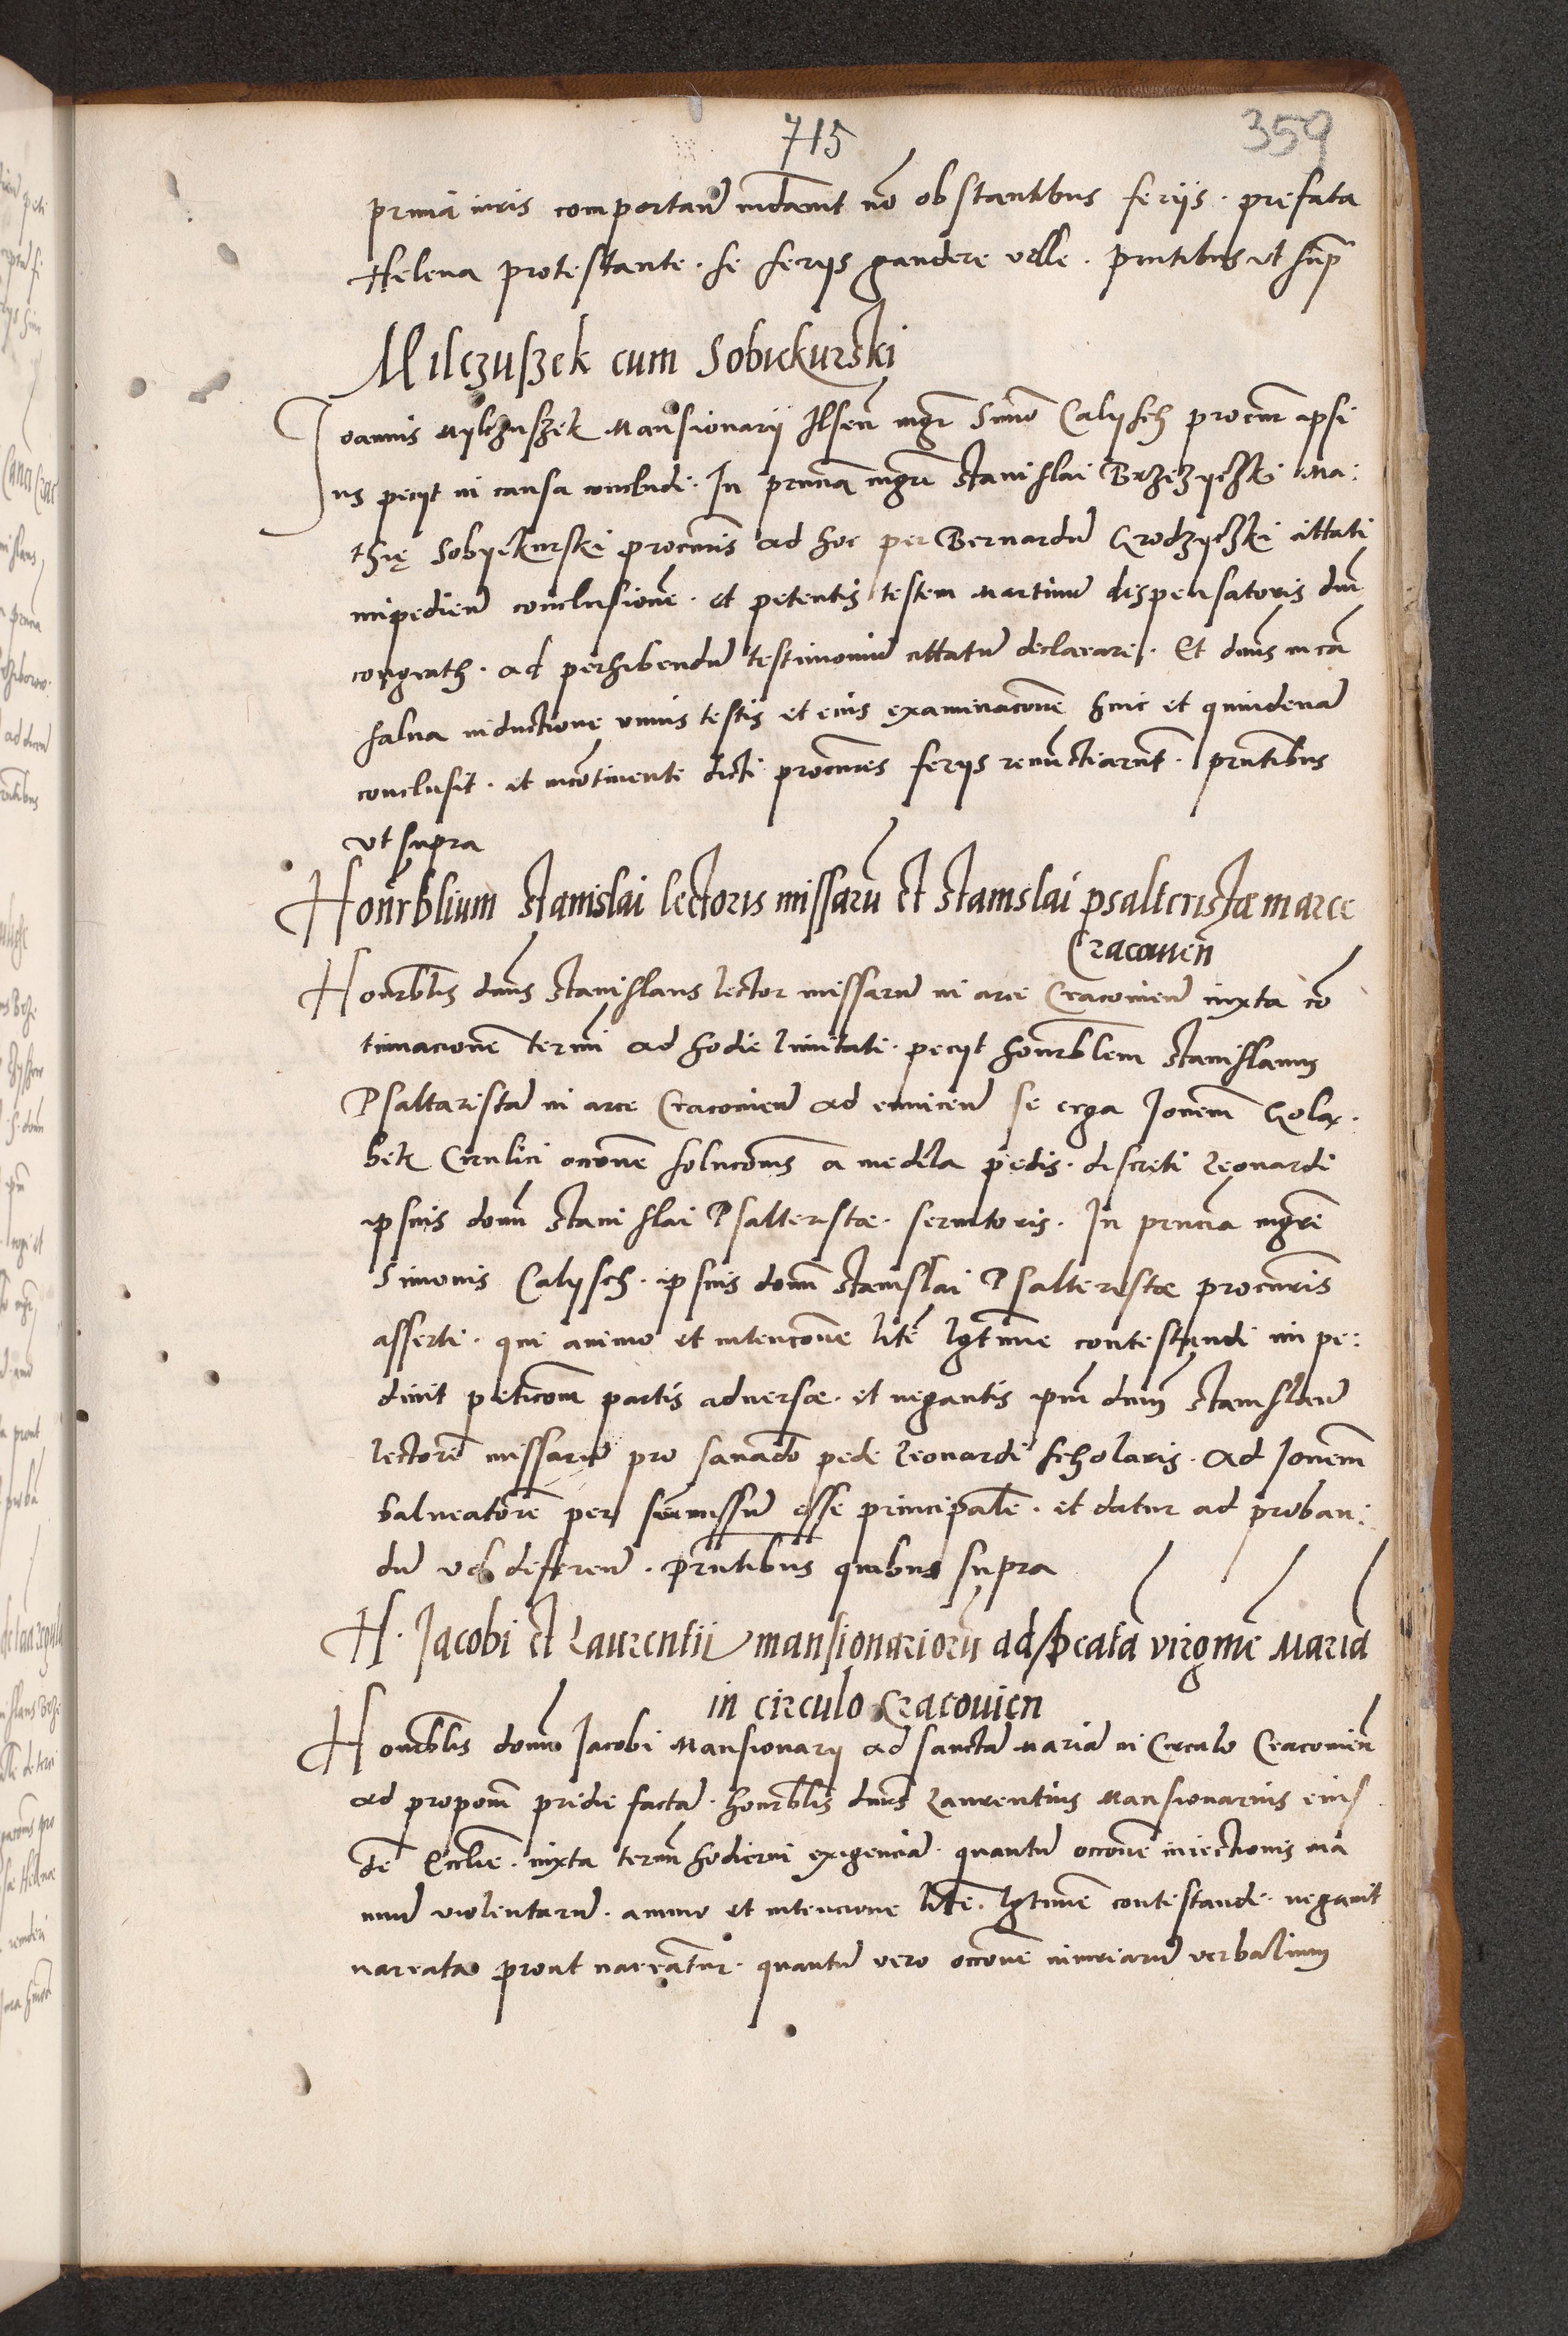 715
359
prima iuris comportand mdavit nō obstantibus feriis . prefata
Helena protestante . se feriis gaudere velle . pntibus ut supr
Milczuszek cum Sobiekurski
Joannis Mylczuszek Mansionarii Ilsen mgr Simo Calijsch procur ipsi
us peciit in causa concludi . In pnciā mgri Stanislai Brzezyczki Ma:
thię Sobyekurski procuris ad hoc per Bernardū Grodzyczki cittati
impedien conclusionē . et petentis testem Martinū dispensatoris dni
ad perhibendū testimoniū cittatū declarari . Et dns in cā
salva inductione unius testis et eius examinacōne hinc et quindenā
conclusit . et incōtinenti dicti procures feriis renūctiarūt . pntibus
ut supra
Honrblium Stanislai lectoris missarū et Stanislai psalteristæ in arce
Cracovien
Honrblis dns Stanislaus lector missarū in arce Cracovien iuxta cō
tinuacionē termi ad hodie limitati . peciit honrblem Stanislaum
Psalteristā in arce Cracovien ad evincen se erga Jonem Golą.
bek Cirulici occone solucōnis a medela pedis . discreti Leonardi
ipsius domi Stanislai Psalteristæ . servitoris . In pncia mgri
Simonis Calijsch . ipsius domi Stanislai Psalteristæ procuris
asserti . qui animo et intencōne litē lgtime contestandi impe:
divit peticom partis adversæ . et negantis ipm dnum Stanislaū
lectorē missarū pro sanādo pede Leonardi scholaris . ad Jonem
balneatorē per se missum esse principalē . et datur ad proban:
dū vel deferen . pntibus quibus supra
H . Jacobi et Laurentii mansionariorū ad beatā virginē Mariā
in circulo Cracovien
Honrblis domi Jacobi Mansionarii ad sanctā Mariā in Circulo Cracovien
ad propom pridie factā . honrblis dns Laurentius Mansionarius eius
dē Ecclie . iuxta termi hodierni exigenciā . quantū occone iniectionis ma
nuū violentarū . animo et intencione litē . lgtime contestandi . negavit
narrata prout narrātur . quantū vero occone iniuriarū verbalium